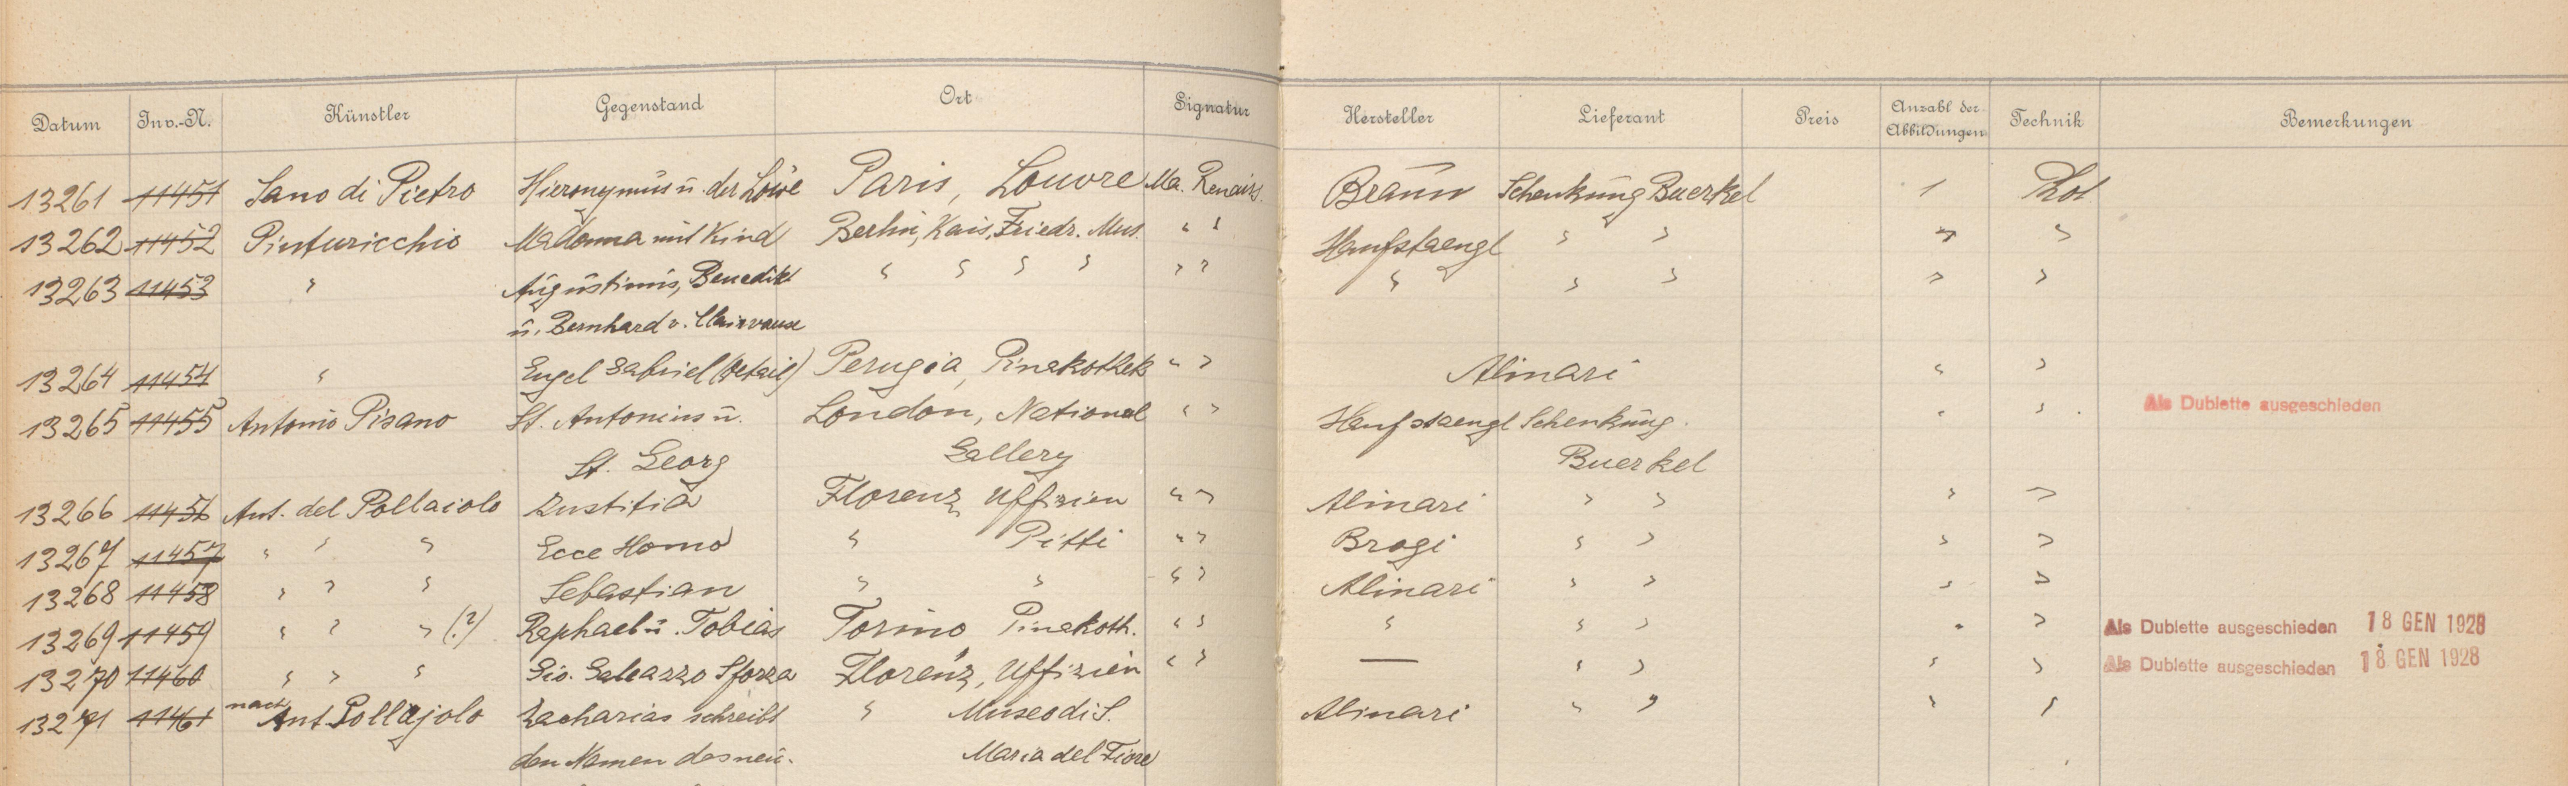 Datum Inv.-N. Künstler Gegenstand Ort Signatur Hersteller Lieferant Preis Anzahl der Abbildungen Technik Bemerkungen
13261 11451 Sano di Pietro Hieronymus u. der Löwe Paris, Louvre Ma. Renaiss. Braun Schenkung Buerkel 1 Phot
13262 11452 Pinturicchio Madonna mit Kind Berlin, Kais. Friedr. Mus. " " Hanfstaengl " " " "
13263 11453 " Augustinus, Benedikt " " " " " " " " " " "
u. Bernhard v. Clairvaux
13264 11454 " Engel Gabriel (Detail) Perugia, Pinakothek " " Alinari " "
13265 11455 Antonio Pisano St. Antonius u. London, National " " Hanfstaengl Schenkung " " Als Dublette ausgeschieden
St. Georg Gallery Buerkel
13266 11456 Ant. del Pollaiolo Iustitia Florenz Uffizien " " Alinari " " " "
13267 11457 " " " Ecce Homo " Pitti " " Brogi " " " "
13268 11458 " " " Sebastian " " " " Alinari " " " "
13269 11459 " " " (?) Raphael u. Tobias Torino Pinakoth. " " " " " " " Als Dublette ausgeschieden 18 GEN 1928
13270 11460 " " " Gio. Galeazzo Sforza Florenz, Uffizien " " — " " " " Als Dublette ausgeschieden 18 GEN 1928
13271 11461 nach Ant. Pollajolo Zacharias schreibt " Museo di S. Alinari " " " "
den Namen des neu- Maria del Fiore